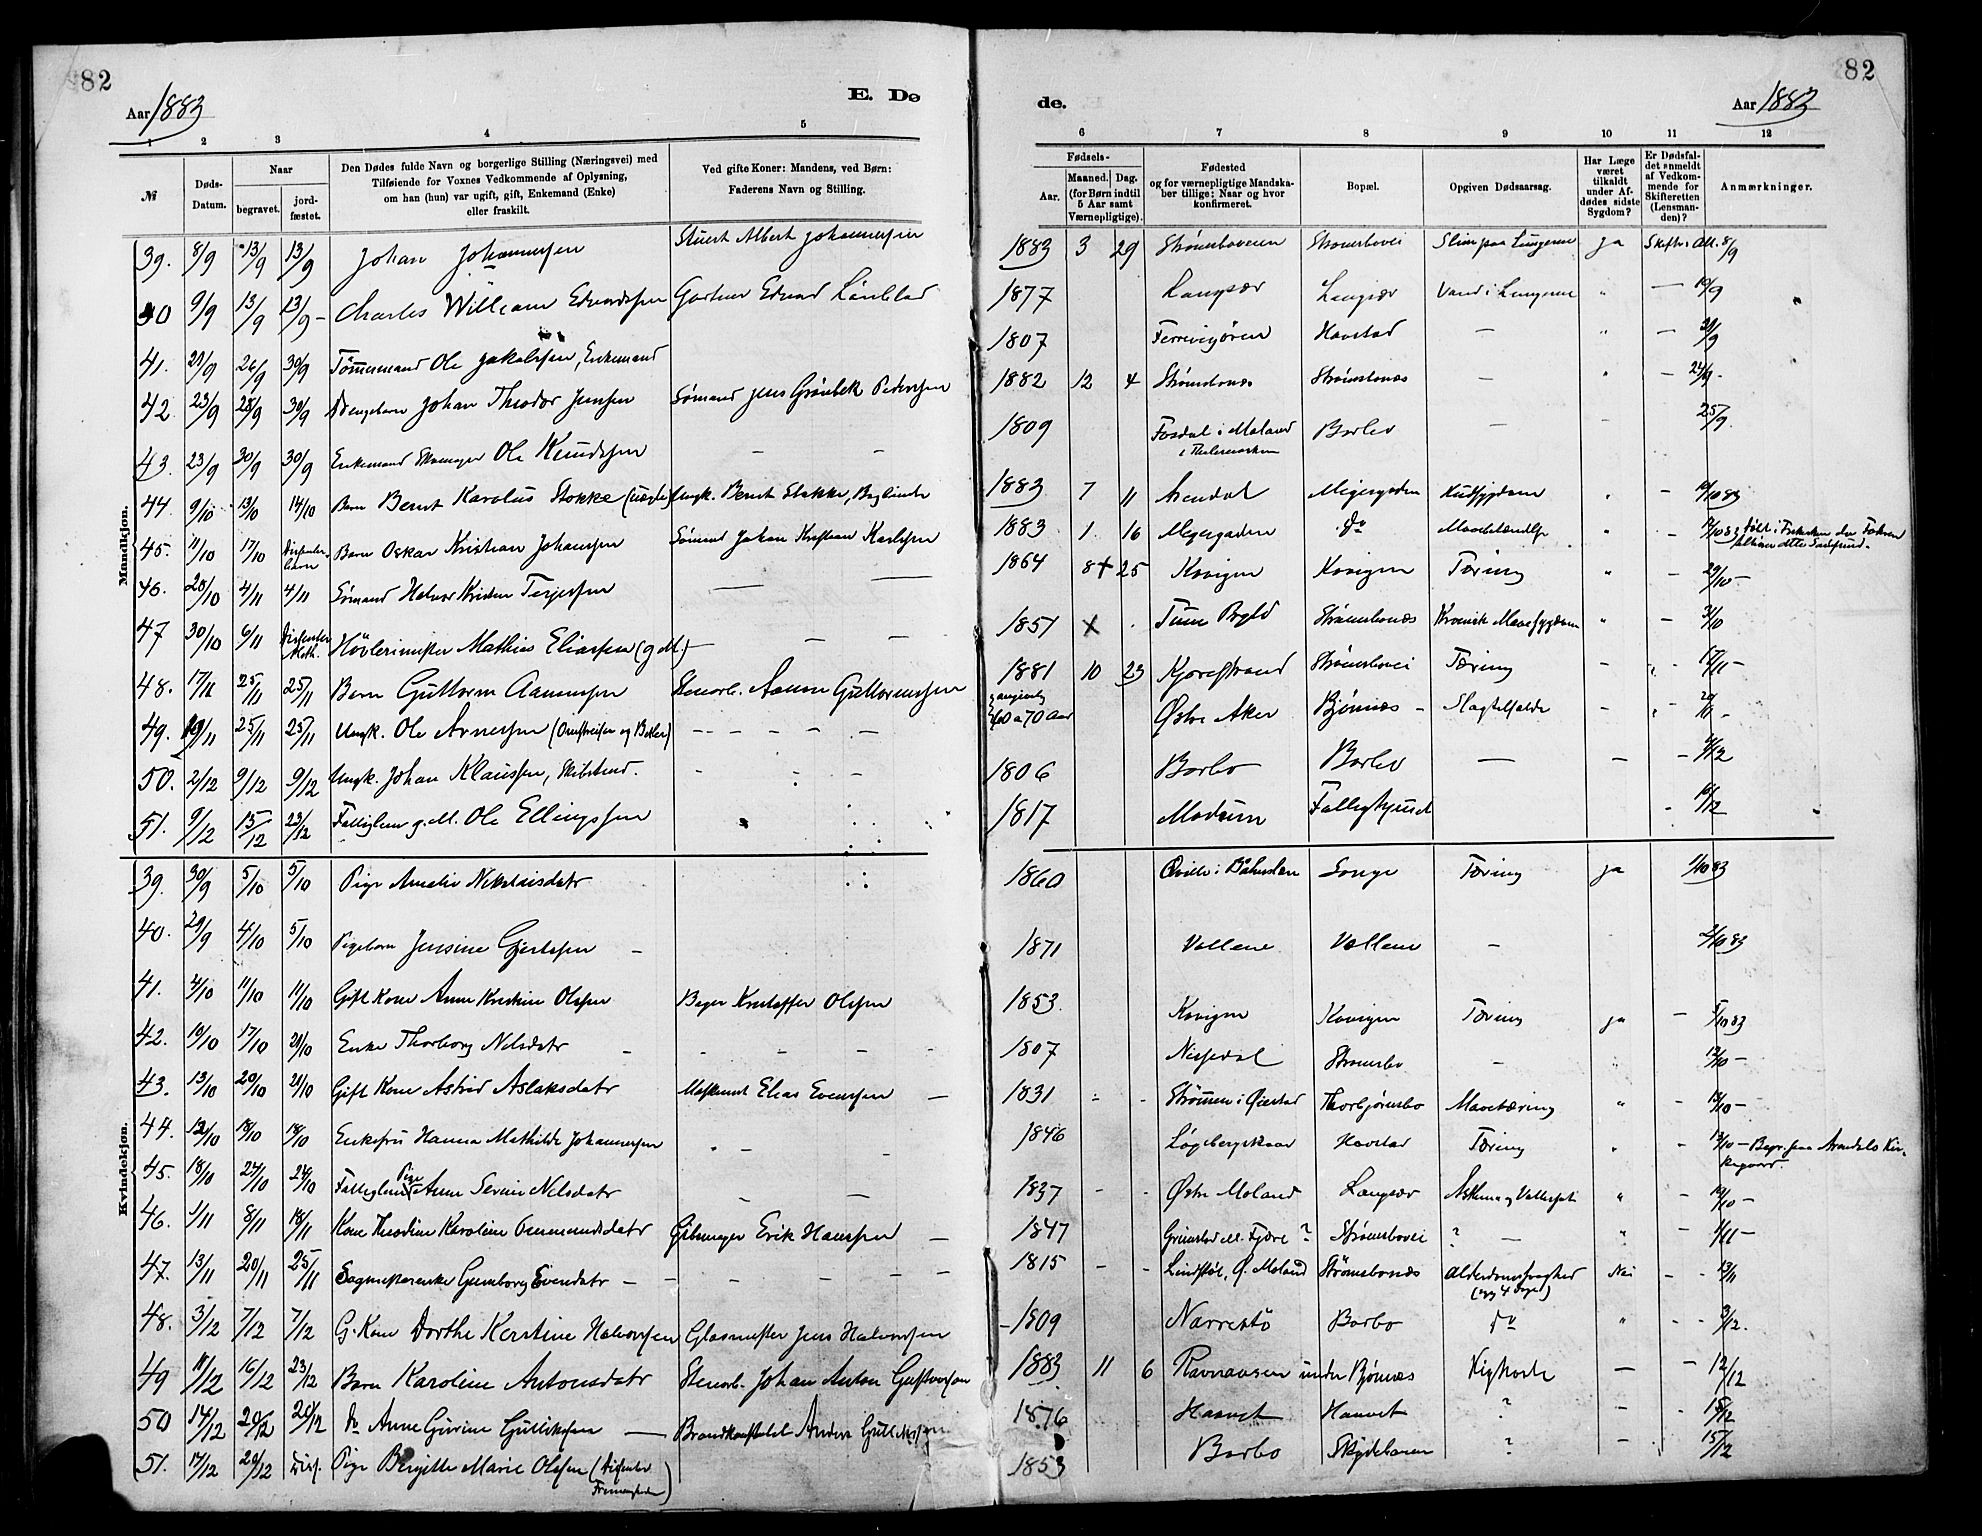 82
Aar 1883
E. Dø
1 2 3 4 5
№
Døds-Datum.
Naar
begravet.
jord-fæstet.
Den Dødes fulde Navn og borgerlige Stilling (Næringsvei) med
Tilføiende for Voxnes Vedkommende af Oplysning,
om han (hun) var ugift, gift, Enkemand (Enke)
eller fraskilt.
Ved gifte Koner: Mandens, ved Børn:
Faderens Navn og Stilling.
Mandkjøn.
39. 8/9 13/9 13/9 Johan Johannessen Stuert Albert Johannessen
40 9/9 13/9 13/9 – Charles William Edvardsen Gartner Edvard
41. 21/9 26/9 30/9 Tømmermand Ole Jakobsen, Enkemand
42. 23/9 28/9 30/9 Drengebarn Johan Theodor Jensen Sømand Jens Grønbek Pedersen
43. 23/9 30/9 30/9 Enkemand Skomager Ole Knudsen – –
44. 9/10 13/10 14/10 Barn Bernt Karolus Stokke (uægte) Ungk. Bernt Stokke,
45. 11/10 17/10 Dissenter barn Barn Oskar Kristian Johansen Sømand Johan Kristian Karlsen
46. 28/10 4/11 4/11 Sømand Halvor Kristen Terjesen — —
47 30/10 6/11 Dissenter Meth. Høvlerimester Mathias Eliassen (g. M.) – – –
48. 17/11 25/11 25/11 Barn Guttorm Aanensen Stenarb. Aanon Guttormsen
49. 19/11 25/11 25/11 Ungk. Ole Arnesen (Omstreifer og Betler) – – – – –
50. 2/12 9/12 9/12 Ungk. Johan Klausen, Skibstmd. – –
51. 9/12 15/12 23/12 Fattiglem g. M. Ole Ellingsen
Kvindekjøn.
39. 30/9 5/10 5/10 Pige Amalie Nikolaisdatr
40. 29/9 4/10 5/10 Pigebarn Jensine Gjertsen –
41. 4/10 11/10 11/10 Gift Kone Anne Kristine Olsen Bager Kristoffer Olsen
42. 10/10 17/10 21/10 Enke Thorborg Nilsdatr – – – – –
43. 13/10 20/10 21/10 Gift Kone Astrid Aslaksdatr Elias Evensen —
44. 12/10 18/10 18/10 Enkefru Hanna Mathilde Johannesen – –
45. 18/10 24/10 24/10 Fattiglem Pige Anne Serine Nilsdatr – –
46. 1/11 8/11 18/11 Kone Theodine Karoline Ommundsdatr Erik Hansen —
47. 13/11 20/11 25/11 Sagmesterenke Gunborg Evendatr – – – – –
48. 3/12 7/12 7/12 G. Kone Dorthe Kerstine Halvorsen Glasmester Jens Halvorsen
49 11/12 16/12 23/12 Barn Karoline Antonsdatr Stenarb. Johan Anton Gustavsen
50 14/12 20/12 20/12 do Anne Gurine Gulliksen — Brandkonstabel Anders Gulliksen
51. 14/12 20/12 Diss. Pige Birgitte Marie Olsen (Dissenter Frimenighed)
82
de.
Aar 1883
6 7 8 9 10 11 12
Fødsels-
Aar.
Maaned. Dag.
(for Børn indtil
5 Aar samt
Værnepligtige).
Fødested
og for værnepligtige Mandska-
ber tillige: Naar og hvor
konfirmeret.
Bopæl.
Opgiven Dødsaarsag.
Har Læge
været
tilkaldt
under Af-
dødes sidste
Sygdom?
Er Dødsfal-
det anmeldt
af Vedkom-
mende for
Skifteretten
(Lensman-
den)?
Anmærkninger.
1883 3 29 Strømsboveien Strømsbovei Slim paa Lungerne ja Skiftr. Att. 8/9
1877 Langsær Langsær Vand i Lungerne " — 10/9
1807 Havstad — " –
1882 12 4 Strømsbonæs Strømsbonæs — " – 24/9 –
1809 Fosdal i Moland i Thelemarken Barbo — – 25/9
1883 7 11 Arendal Meiergaden Hudsygdom – 10/10 83
1883 1. 16 Meiergaden do " – 12/10 83
1864 8+ 25 Kovigen Kovigen Tæring " – 29/10 –
1851 x Tune Strømsbonæs Kronisk Mavesygdom " – 31/10
1881 10 23 Strømsbovei Tæring – 17/11 –
60 a 70 Aar Østre Aker Bjønnæs – – 20/11 –
1806 Barbo Barbo — – – 4/12
1817 Modum Fattighuset – 10/12
1860 Qville i Bahuslen Songe Tæring ja 1/10 83
1871 Vallene Vallene – 2/10 83
1853 Kovigen Kovigen Tæring ja – 5/10 83
1807 Nissedal Strømsbo – 12/10 –
1831 Strømmen i Øiestad Thorbjørnsbo Mavetæring " – 13/10 –
1846 Havstad Tæring – 13/10 – Begr. paa Arendals Kirkegaard.
1837 – – Østre Moland Langsær Asthma og Vattersot " – 19/10 –
1847 Grimstad ell. Fjære? Strømsbovei ? — " – 1/11 –
1815 – – Lindstøl, Ø. Moland Strømsbonæs Alderdomssvaghed Nei – – 13/11
1809 Narrestø Barbo do " – – 3/12.
1883 11 6 Ravnaasen under Bjønnæs Kighoste — – 12/12
1876 Haavet Haavet ? – – 15/12
1853 Barbo Skydebanen ? – – 15/12